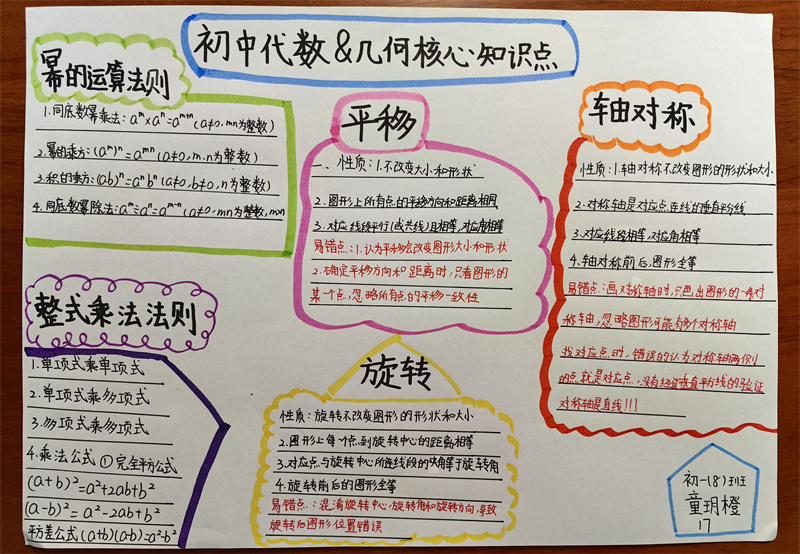 初中代数&几何核心知识点
幂的运算法则
1.同底数幂乘法:aᵐ×aⁿ=aᵐ⁺ⁿ(a≠0,mn为整数)
2.幂的乘方:(aᵐ)ⁿ=aᵐⁿ(a≠0,m、n为整数)
3.积的乘方:(ab)ⁿ=aⁿbⁿ(a≠0,b≠0,n为整数)
4.同底数幂除法:aᵐ÷aⁿ=aᵐ⁻ⁿ(a≠0,mn为整数,m>n
整式乘法法则
1.单项式乘单项式
2.单项式乘多项式
3.多项式乘多项式
4.乘法公式①完全平方公式
(a+b)²=a²+2ab+b²
(a-b)²=a²-2ab+b²
平方差公式(a+b)(a-b)=a²-b²
平移
一、性质:1.不改变大小和形状
2.图形上所有点的平移方向和距离相同
3.对应线段平行(或共线)且相等,对应角相等
易错点:1.认为平移会改变图形大小和形状
2.确定平移方向和距离时,只看图形的
某个点,忽略所有点的平移一致性
旋转
性质:旋转不改变图形的形状和大小
2.图形上每个点到旋转中心的距离相等
3.对应点与旋转中心所连线段的夹角等于旋转角
4.旋转前后的图形全等
易错点:混淆旋转中心,旋转角和旋转方向,导致
旋转后图形位置错误
轴对称
性质:1.轴对称不改变图形的形状和大小
2.对称轴是对应点连线的垂直平分线
3.对应线段相等,对应角相等
4.轴对称前后,图形全等
易错点:画对称轴时,只画出图形的一条对
称轴,忽略图形可能有多个对称轴
找对应点时,错误的认为对称轴两侧
的点就是对应点,没有经过垂直平分线的验证
对称轴是直线!!!
初一(8)班
童玥橙
17